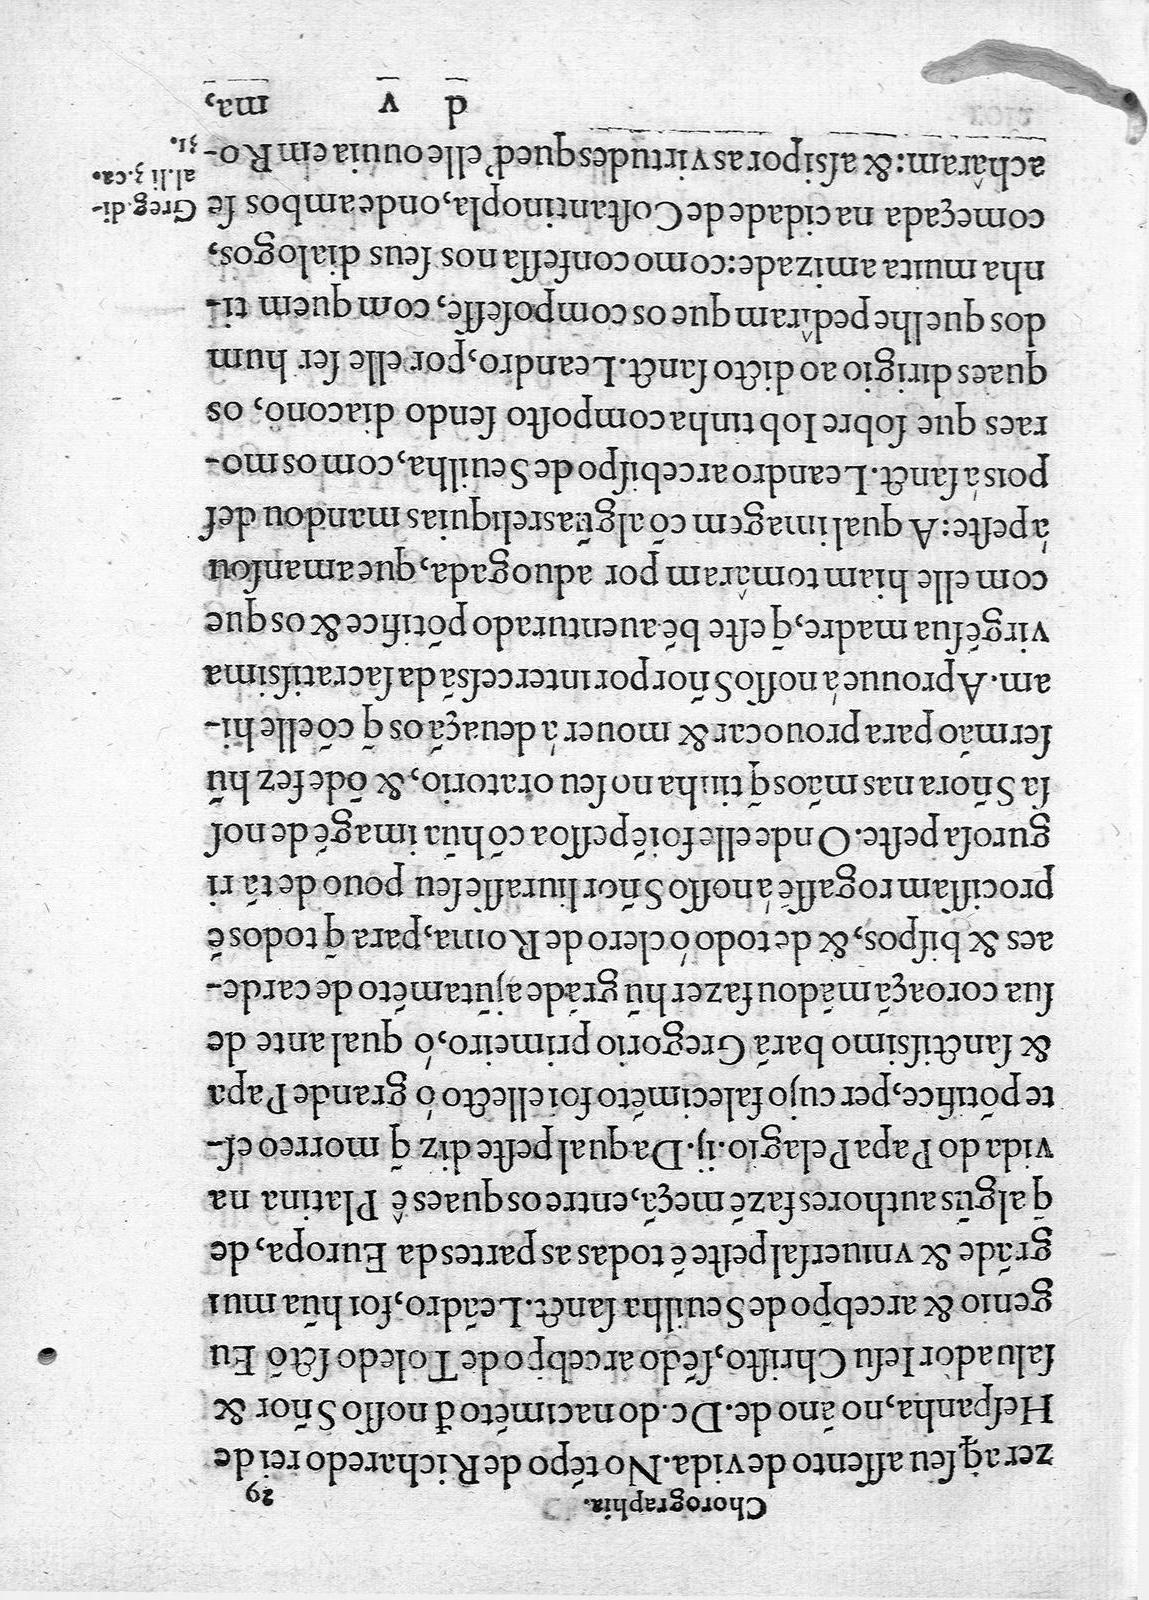 Chorographia. 29
zer aq̃ ſeu aſſento de vida. No tẽpo de Richaredo rei de
Heſpanha, no áno de. Dc. do nacimẽto đ noſſo Sñor &
ſaluador Ieſu Chriſto, ſẽdo arcebp̃o de Toledo ſcto Eu
genio & arcebp̃o de Seuilha ſanct. Leãdro, foi hũa mui
grãde & vniuerſal peſte ẽ todas as partes da Europa, de,
q̃ algũs authores fazẽ mẽçã, entre os quaes ê Platina na
vida do Papa Pelagio. ij. Da qual peſte diz q̃ morreo eſ-
te põtifice, per cujo falecimẽto foi ellecto ó grande Papa
& ſanctiſsimo barã Gregorio primeiro, ó qual ante de
ſua coroaçã mãdou fazer hũ grãde ajũtamẽto de carde-
aes & biſpos, & de todo ó clero de Roma, para q̃ todos ẽ
prociſſam rogaſſẽ á noſſo Sñor liuraſſe ſeu pouo de tã ri
guroſa peſte. Onde elle foi ẽ peſſoa cõ hũa imagẽ de noſ
ſa Sñora nas mãos q̃ tinha no ſeu oratorio, & õde fez hũ
ſermão para prouocar & mouer á deuaçã os q̃ cõ elle hi-
am. Aprouue á noſſo Sñor por interceſsã da ſacratiſsima
virgẽ ſua madre, q̃ eſte bẽ auenturado põtifice & os que
com elle hiam tomâram por aduogada, que amanſou
á peſte: A qual imagem cõ algũas reliquias mandou deſ
pois á ſanct. Leandro arcebiſpo de Seuilha, com os mo-
raes que ſobre Iob tinha compoſto ſendo diacono, os
quaes dirigio ao dicto ſanct. Leandro, por elle ſer hum
dos que lhe pedîram que os compoſeſſe, com quem ti-
nha muita amizade: como confeſſa nos ſeus dialogos,
começada na cidade de Coſtantinopla, onde ambos ſe
achâram: & aſsi por as virtudes que d'elle ouuia em Ro-
Greg. di-
al. li 3. ca.
31.
d v ma,